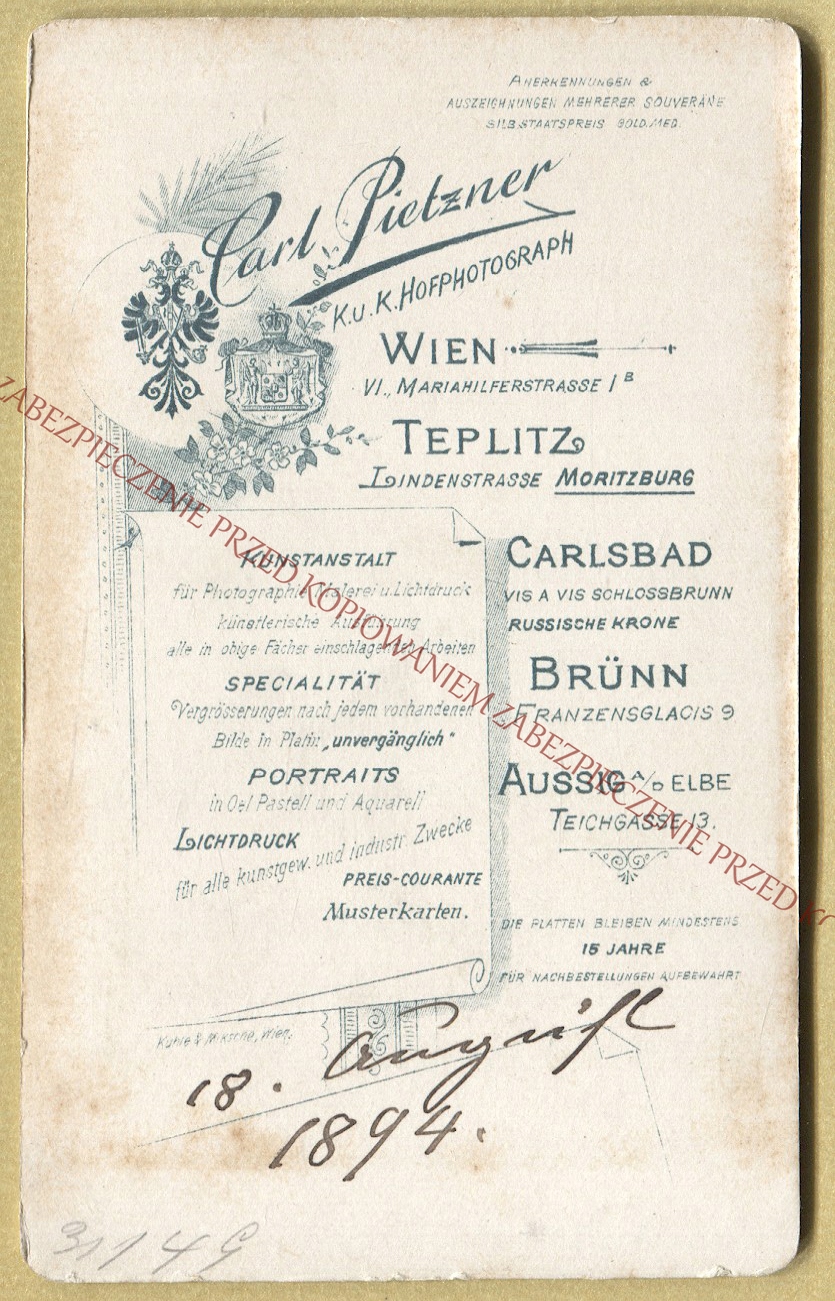 Anerkennungen &
Auszeichnungen mehrerer Souveräne
Silb. Staatspreis Gold. Med.
Carl Pietzner
K.u.K. Hofphotograph
Wien
VI., Mariahilferstrasse 1B
Teplitz
Lindenstrasse Moritzburg
Kunstanstalt
für Photographie Malerei u. Lichtdruck
künstlerische Ausführung
alle in obige Fächer einschlagenden Arbeiten
Specialität
Vergrösserungen nach jedem vorhandenen
Bilde in Platin „unvergänglich"
Portraits
in Oel Pastell und Aquarell
Lichtdruck
für alle kunstgew. und industr Zwecke
Preis-Courante
Musterkarten.
Carlsbad
vis a vis Schlossbrunn
Russische Krone
Brünn
Franzensglacis 9
Aussig a/D Elbe
Teichgasse 13.
Die Platten bleiben mindestens
15 Jahre
für Nachbestellungen aufbewahrt
Wien.
18. August
1894.
ZABEZPIECZENIE PRZED KOPIOWANIEM ZABEZPIECZENIE PRZED KO